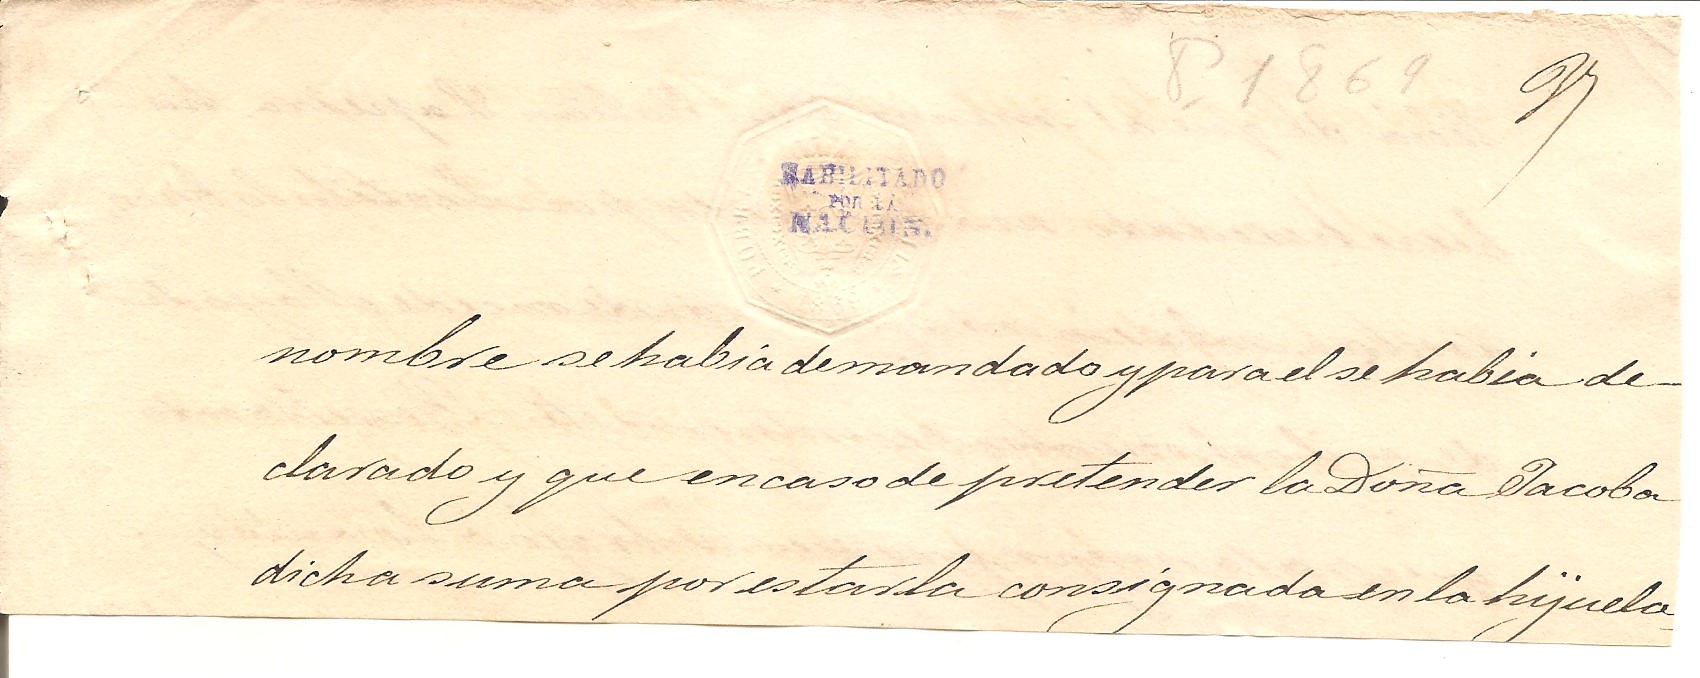 P 1869
HABILITADO
POR LA
NACION.
nombre se habia demandado y para el se habia de-
clarado y que en caso de pretender la Doña Jacoba
dicha suma por estarla consignada en la hijuela